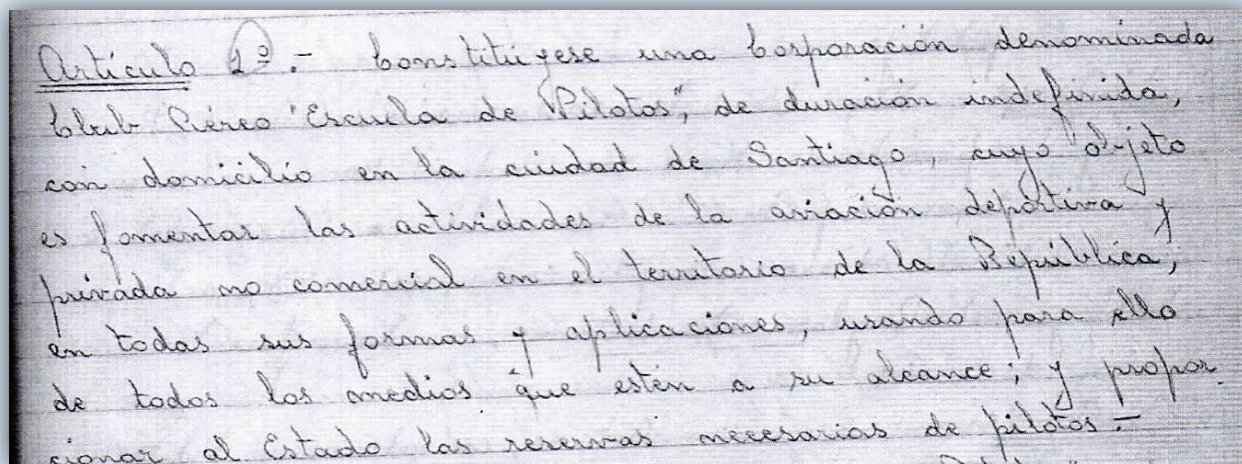 Artículo 1º.- Constitúyese una Corporación denominada
Club Aéreo "Escuela de Pilotos", de duración indefinida,
con domicilio en la ciudad de Santiago, cuyo objeto
es fomentar las actividades de la aviación deportiva y
privada no comercial en el territorio de la República,
en todas sus formas y aplicaciones, usando para ello
de todos los medios que estén a su alcance; y propor
cionar al Estado las reservas necesarias de pilotos.-